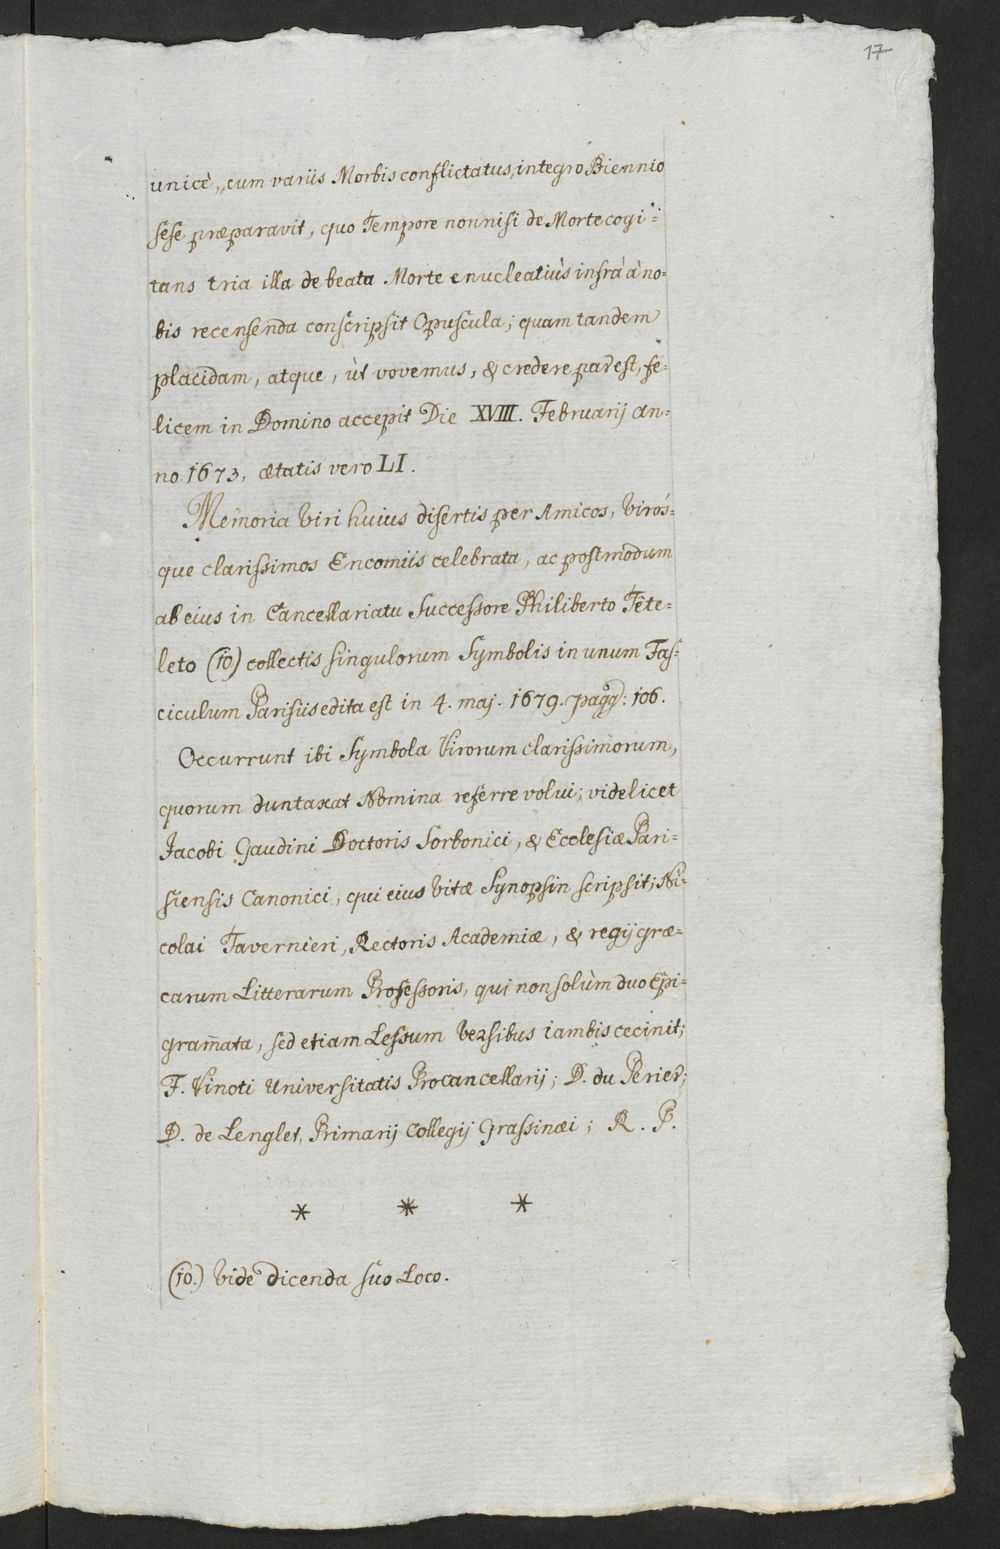 17
unicè, cum variis Morbis conflictatus, integro Biennio
sese præparavit, quo Tempore nonnisi de Morte cogi=
tans tria illa de beata Morte enucleatiùs infrà à no=
bis recensenda conscripsit Opuscula; quam tandem
placidam, atque, ùt vovemus, & credere par est, fe=
licem in Domino accepit Die XVIII. Februarij an=
no 1673, ætatis vero LI.
Memoria Viri huius disertis per Amicos, Virós=
que clarissimos Encomiis celebrata, ac postmodum
ab eius in Cancellariatu Successore Philiberto Tête=
leto (10) collectis singulorum Symbolis in unum Fas=
ciculum Parisiis edita est in 4. maj. 1679. pagg: 106.
Occurrunt ibi Symbola Virorum clarissimorum,
quorum duntaxat Nomina referre volui; videlicet
Jacobi Gaudini Doctoris Sorbonici, & Ecclesiæ Pari=
siensis Canonici, qui eius Vitæ Synopsin scripsit; Ni=
colai Tavernieri, Rectoris Academiæ, & regij græ=
carum Litterarum Professoris, qui non solùm duo Epi=
gram̄ata, sed etiam Lessum Versibus iambis cecinit;
F. Vinoti Universitatis Procancellarij; D. du Perier;
D. de Lenglet, Primarij Collegij Grassinæi; R. P.
* * *
(10.) Vide dicenda suo Loco.